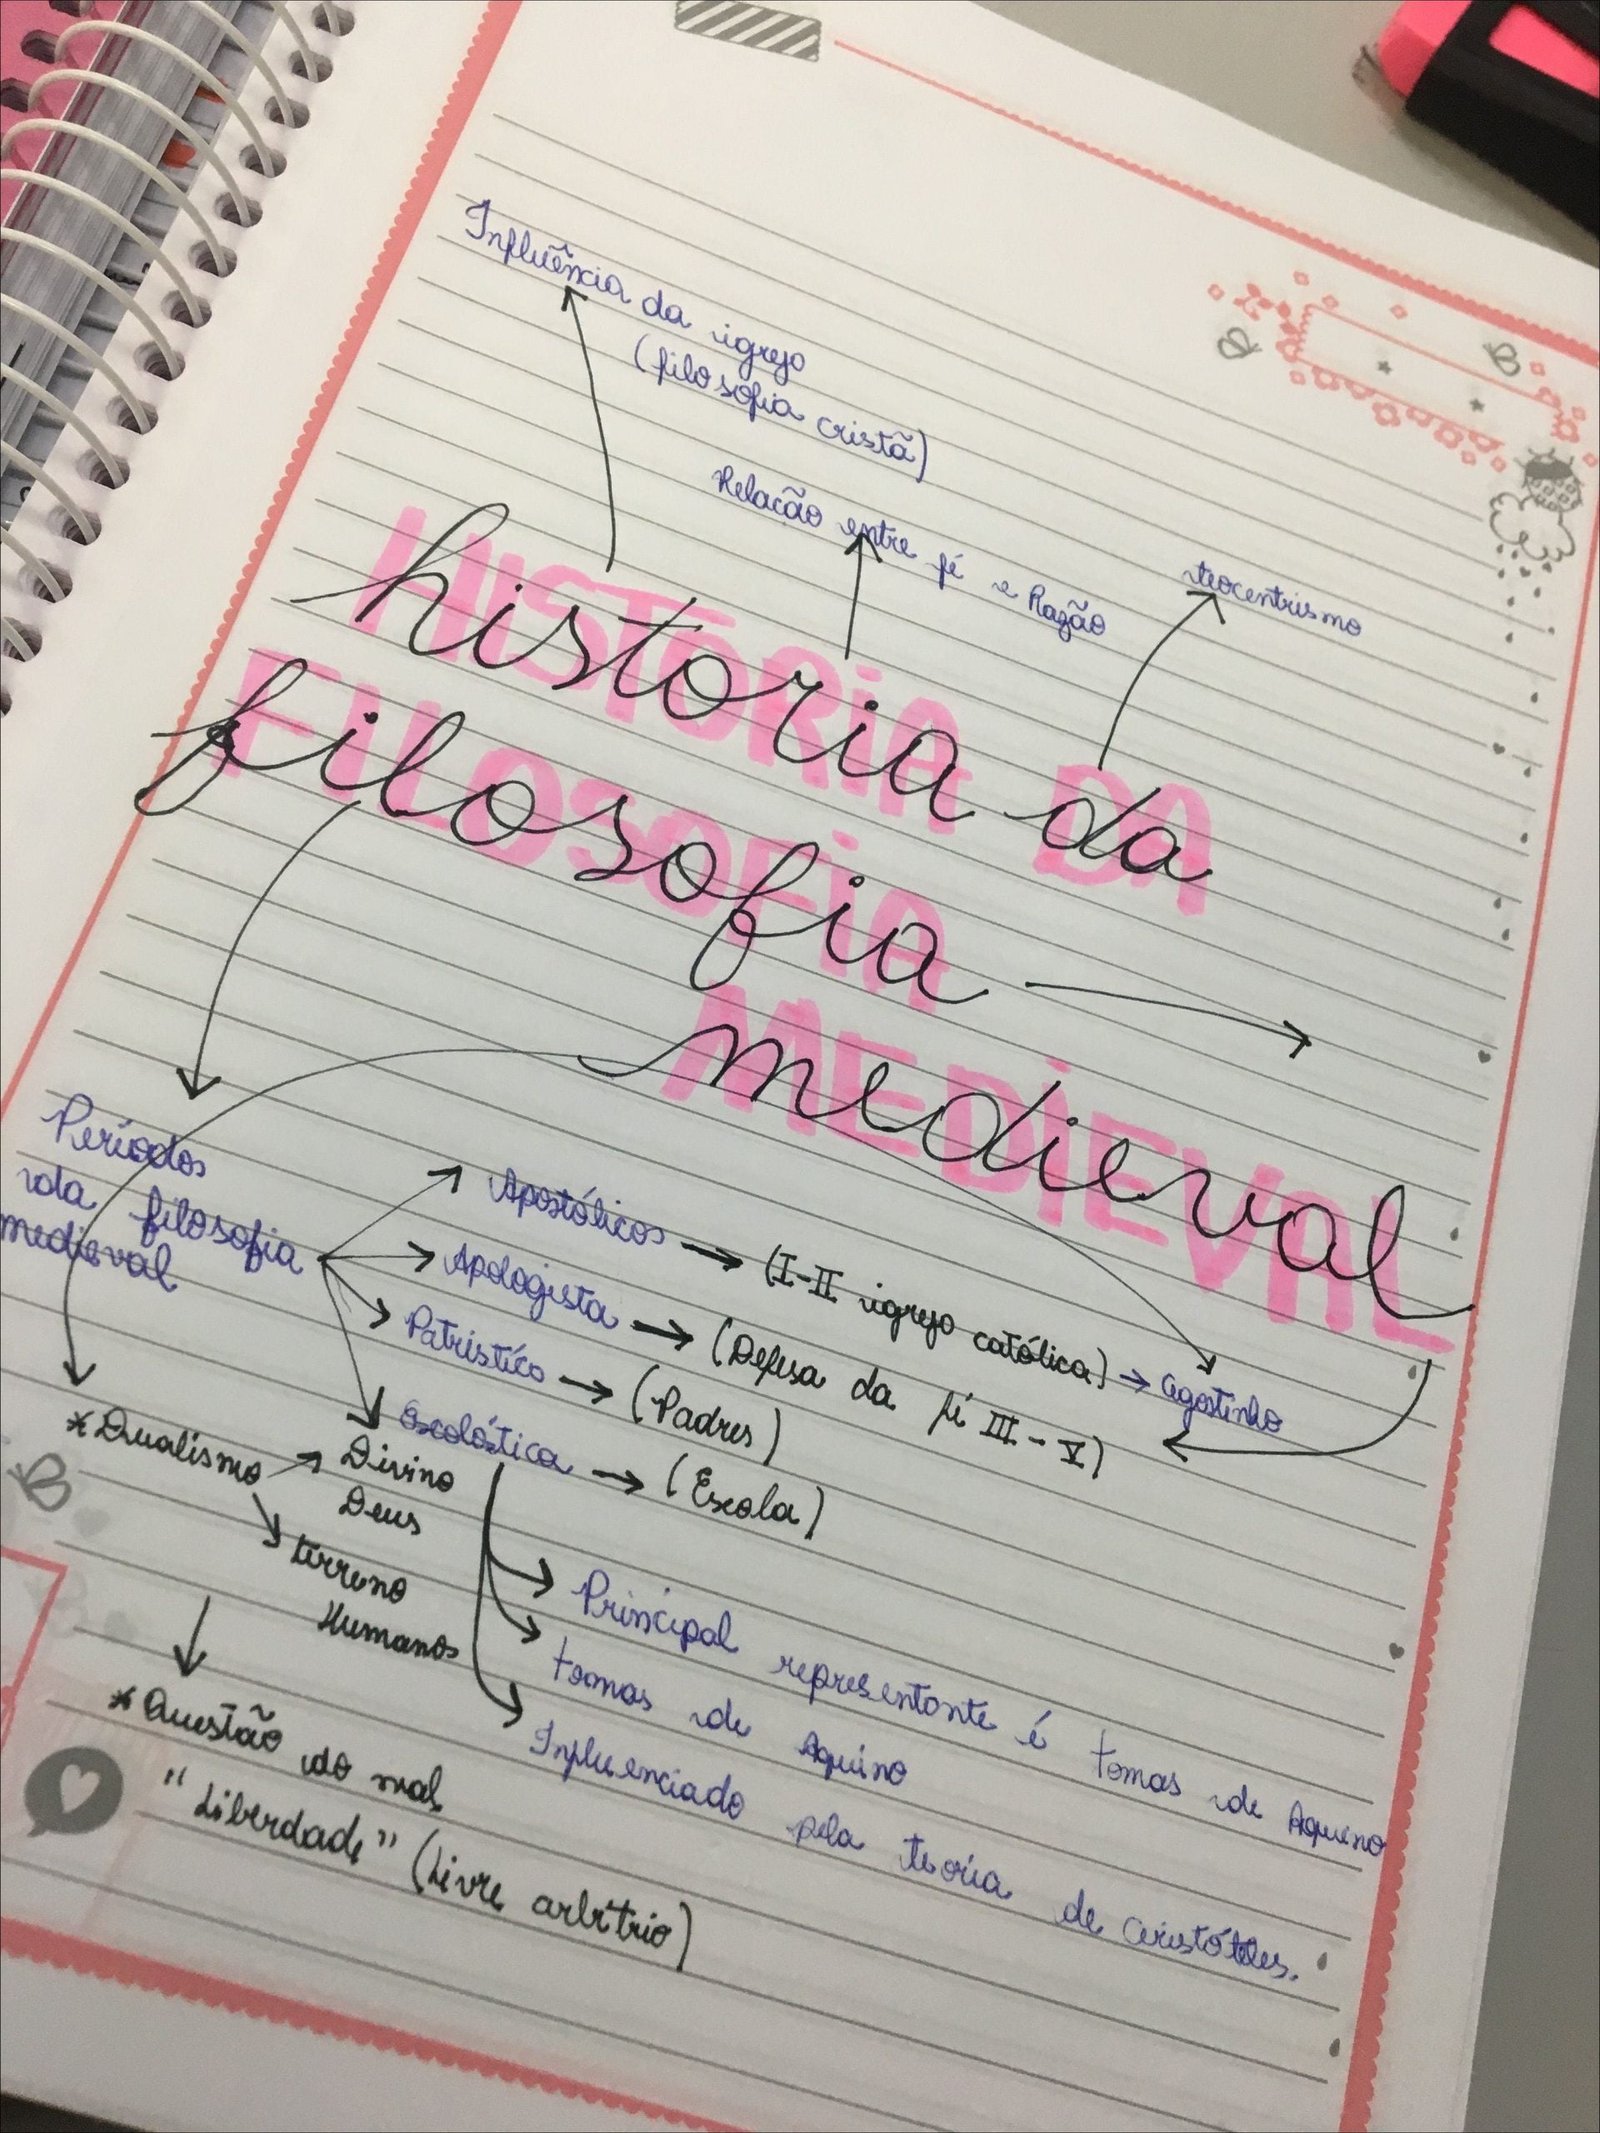 Influência da igreja
(filosofia cristã)
Relacão entre fé e Razão
teocentrismo
HISTÓRIA DA
historia da
FILOSOFIA
filosofia
MEDIEVAL
medieval
Períodos
da filosofia
medieval
Apostólicos → (I-II igreja católica) → agostinho
Apologista → (Defesa da fé III-V)
Patrístico → (Padres)
Escolástica → (Escola)
* Dualismo → Divino
Deus
terreno
Humanos
Principal representante é tomas de Aquino
tomas de Aquino
Influenciado pela teoria de aristóteles.
* Questão do mal
"Liberdade" (Livre arbítrio)